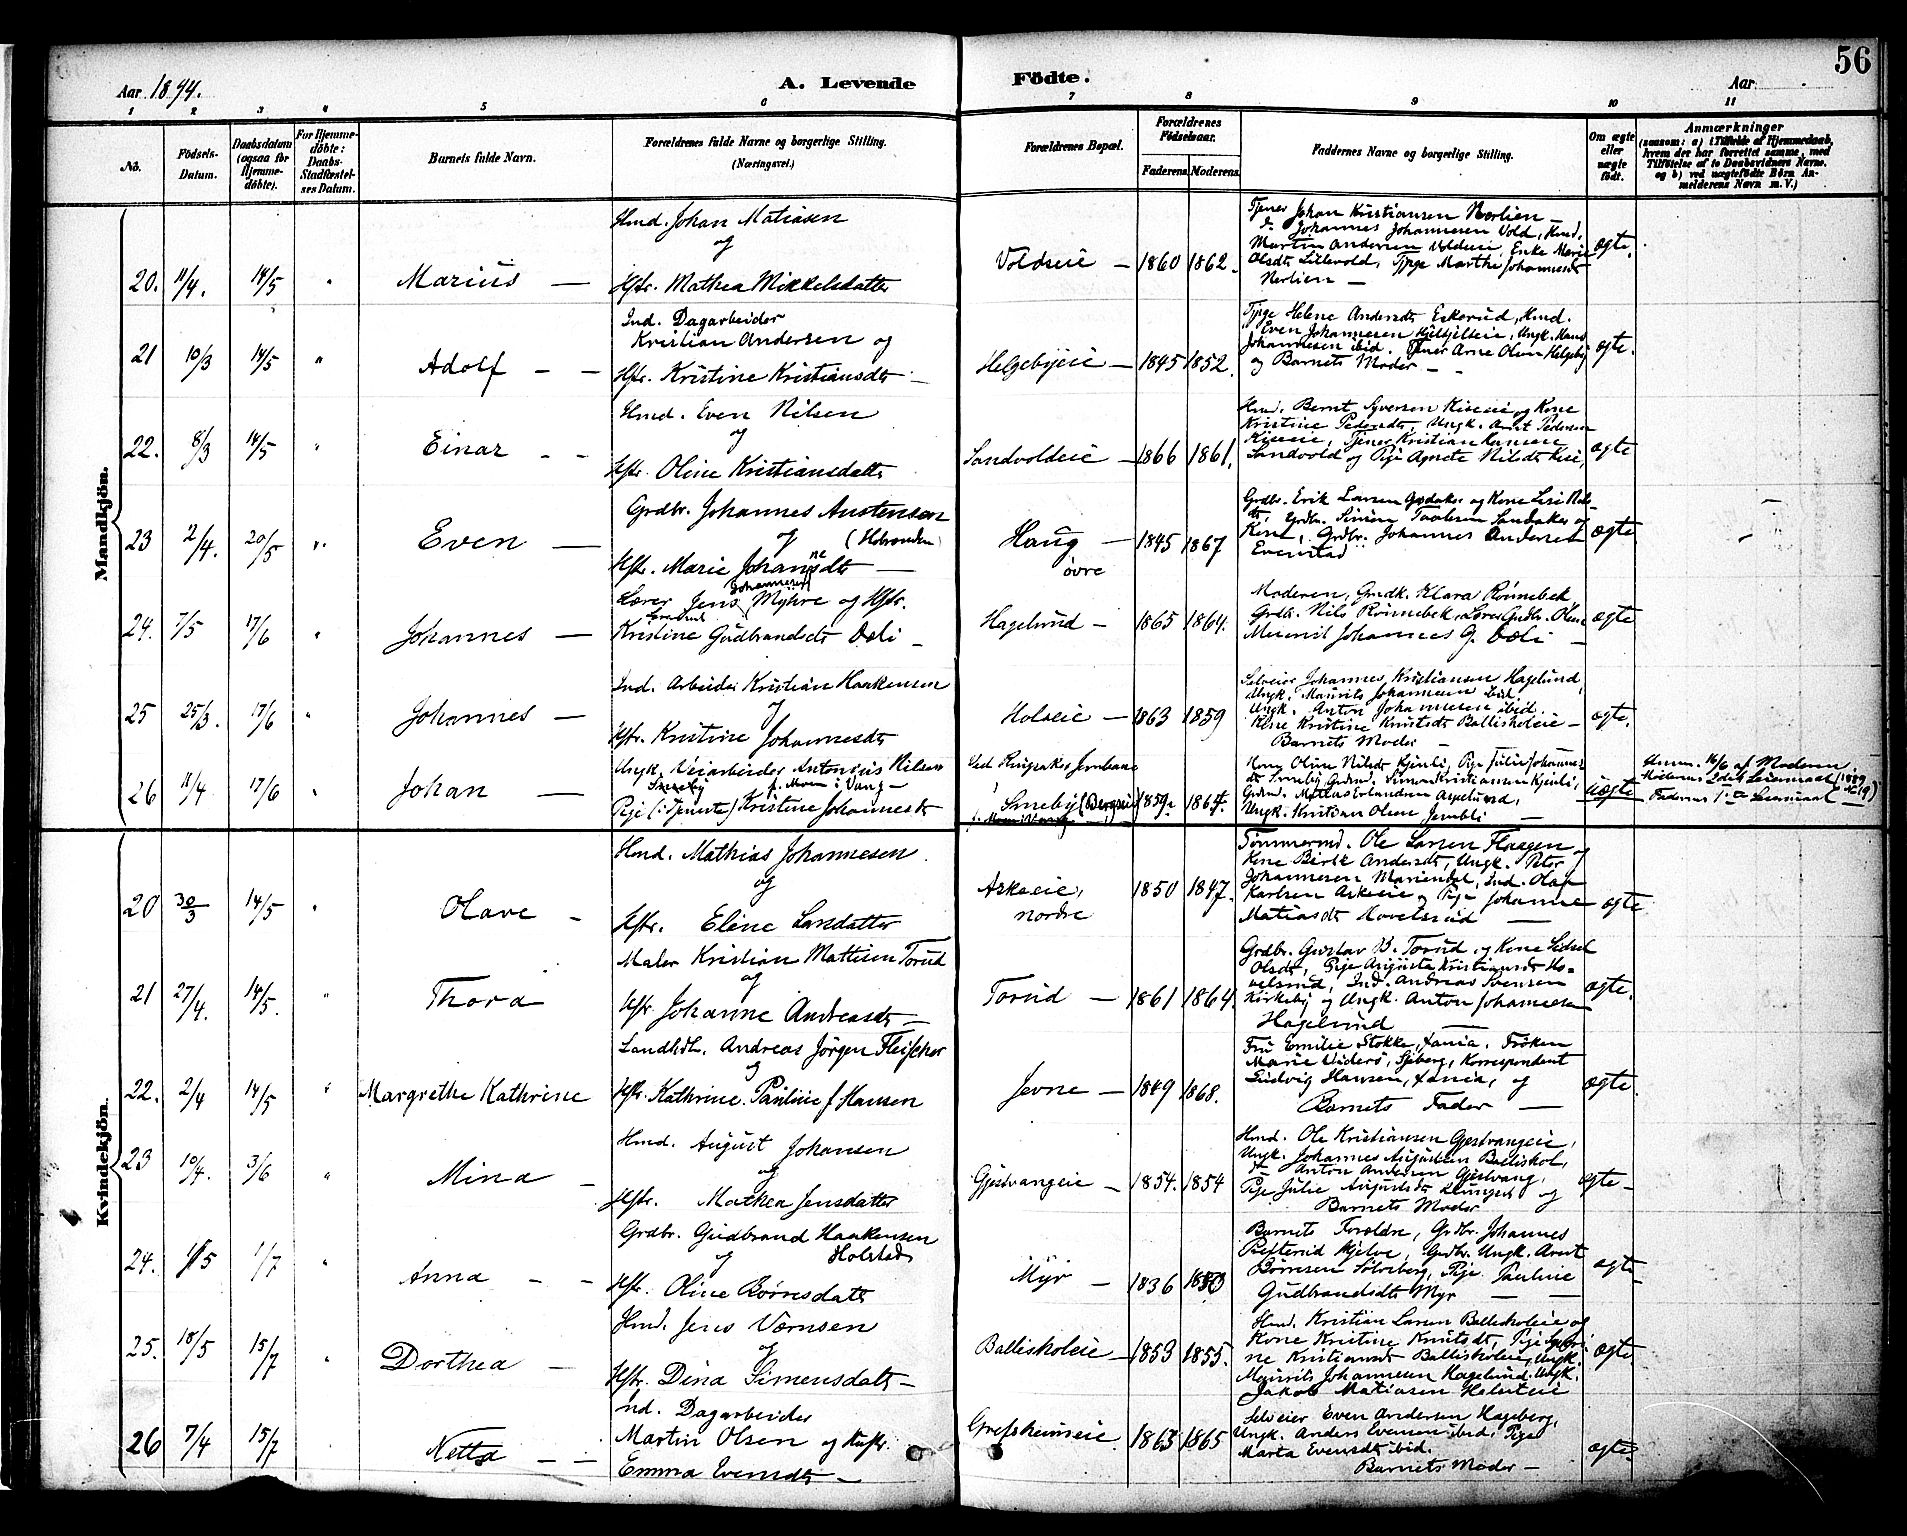 56
Aar 1894.
A. Levende
Födte.
Aar
1 2 3 4 5 6 7 8 9 10 11
No.
Födsels-
Datum.
Daabsdatum
(ogsaa för
Hjemme-
döbte).
For Hjemme-
döbte:
Daabs-
Stadfæstel-
ses Datum.
Barnets fulde Navn.
Forældrenes fulde Navne og borgerlige Stilling.
(Næringsvei.)
Forældrenes Bopæl.
Forældrenes
Födselsaar.
Faderens. Moderens.
Faddernes Navne og borgerlig Stilling.
Om ægte
eller
uægte
født.
Anmærkninger
(saasom: a) i Tilfælde af Hjemmedaab,
hvem der har forrettet samme, med
Tilføielse af to Daabsvidners Navne,
og b) ved uægtefödte Börn An-
melderens Navn m. V.)
Mandkjön.
20. 11/4. 14/5 " Marius —
Hmd. Johan Matiasen
og
Hstr. Mathea Mikkelsdatter
Voldseie — 1860 1862.
Tjener Johan Kristiansen Nerlien —
do Johannes Johannesen Vold, Hmd.
Martin Andersen Voldseie, Enke Marie
Olsdtr Lillevold, Pige Marthe Johannesdtr
Nerlien —
ægte.
21 10/3 14/5 " Adolf — —
Ind. Dagarbeider
Kristian Andersen og
Hstr. Kristine Kristiansdtr —
Helgebyeie — 1845 1852.
Pige Helene Andersdtr Eskerud, Hmd.
Even Johannesen, Ungk. Hans
Johannesen ibid. Tjener Arne Olsen Helgeby
og Barnets Moder — -
ægte.
22. 8/3 14/5 " Einar - -
Hmd. Even Nilsen
og
Hstr. Oline Kristiansdatter
Sandvoldeie — 1866 1861.
Hmd. Bernt Syversen Kiseeie og Kone
Kristine Pedersdtr, Ungk. Arnt Pedersen
Kiseeie, Tjener Kristian Hansen
Sandvold og Pige Agnete Nilsdtr Kise,
ægte
23 2/4. 20/5 " Even —
Grdbr. Johannes Austensen
og
Hstr. Marie Johannesdtr —
Haug — 1845 1867
øvre
Grdbr. Erik Larsen og Kone
Grdbr. Simen Sandaker og
Kone, Grdbr. Johannes Andersen
Evenstad
ægte
24. 7/5 17/6 " Johannes —
Johannesen
Lærer Jens Myhre og Hstr.
Kristine Gudbrandsdtr Doli -
Hagelund — 1865 1864.
Moderen, Grdk. Klara Rønnebek
Grdbr. Nils Rønnebek, Grdbr. Olsen
Johannes G. Doli —
ægte
25 25/3. 17/6 " Johannes —
Ind. Arbeider Kristian Haakensen
og
Hstr. Kristine Johannesdtr
Holseie — 1863 1859
Selveier Johannes Kristiansen Hagelund,
Ungk. Maurits Johannesen ibid
Ungk. Anton Johannesen ibid.
Kone Kristine Knutsdtr Balliskoleie —
Barnets Moder —
ægte.
26 11/4 17/6 " Johan —
Ungk. Veiarbeider Antonius Nilsen
Smeby f. Moen i Vang —
Pige (: Tjeneste) Kristine Johannesdtr
Smeby (Bergseie) 1859. 1867.
Kone Oline Nilsdtr Kjenli, Pige Julie Johannes-
dtr Smeby Grdmd. Simen Kristiansen Kjenli,
Grdmd. Matias Erlandsen Aspelund,
Ungk. Kristian Olsen —
uægte
Anm. 16/6 af Moderen
Moderens 2det Leiermaal
Faderens 1ste Leiermaal
Kvindekjön.
20 30/3 14/5 " Olave -
Hmd. Mathias Johannesen
og
Hstr. Eline Larsdatter
Askeeie, 1850 1847.
nordre
Tømmermd. Ole Larsen Flaagen og
Kone Birte Andersdtr, Ungk. Peter
Johannesen Mariendal, Ind. Olaf
Karlsen Askeeie og Pige Johanne
Matiasdtr Hovelsrud —
ægte
21 27/4. 14/5. " Thora
Maler Kristian Mattisen Torud
og
Hstr Johanne Andreasdtr —
Torud — 1861 1864.
Grdbr. Gustav B. Torud og Kone Sidsel
Olsdtr, Pige Augusta Kristiansdtr Ho-
velsrud, Ind. Andreas Svensen
Kirkeby og Ungk. Anton Johannesen
Hagelund —
ægte.
22. 2/4 14/5 " Margrethe Kathrine
Landhdl. Andreas Jörgen Fleischer
og
Hstr. Kathrine Pauline f Hansen
Jevne — 1849 1868.
Fru Emilie Stokke, Xania. Frøken
Marie Viderö, Sjöberg, Korrespondent
Ludvig Hansen, Xania, og
Barnets Fader —
ægte.
23 10/4. 3/6 " Mina -
Hmd. August Johansen
og
Hstr. Mathea Jensdatter
Gjestvangeie — 1854. 1854
Hmd. Ole Kristiansen Gjestvangeie,
Ungk. Johannes Augustsen Balliskol,
do Anton Andersen Gjestvang,
Pige Julie Augustsdtr og
Barnets Moder
ægte —
24. 1/5 1/7 " Anna - -
Grdbr. Gudbrand Haakensen
og Holstad
Hstr. Oline Børresdatter
Myr — 1836 1853
Barnets Forældre, Grdbr. Johannes
Hjelve, Ungk. Arnt
Børresen Sölvsberg, Pige Pauline
Gudbrandsdtr Myr — —
ægte
25. 18/5 15/7 " Dorthea —
Hmd. Jens Vernsen
og
Hstr. Dina Simensdatter —
Balliskoleie — 1853 1855.
Hmd. Kristian Larsen Balliskoleie og
Kone Kristine Knutsdtr, Pige
ne Kristiansdtr Balliskoleie, Ungk.
Maurits Johannesen Hagelund. Ungk.
Jakob Matiasen Holsteie
ægte
26 7/4 15/7 Netta — —
Ind. Dagarbeider
Martin Olsen og Hustr.
Emma Evensdtr —
Grefsheimeie 1863 1865
Selveier Even Andersen Hageberg,
Ungk. Anders Evensen ibid. Pige
Marta Evensdtr ibid.
Barnets Moder —
ægte.